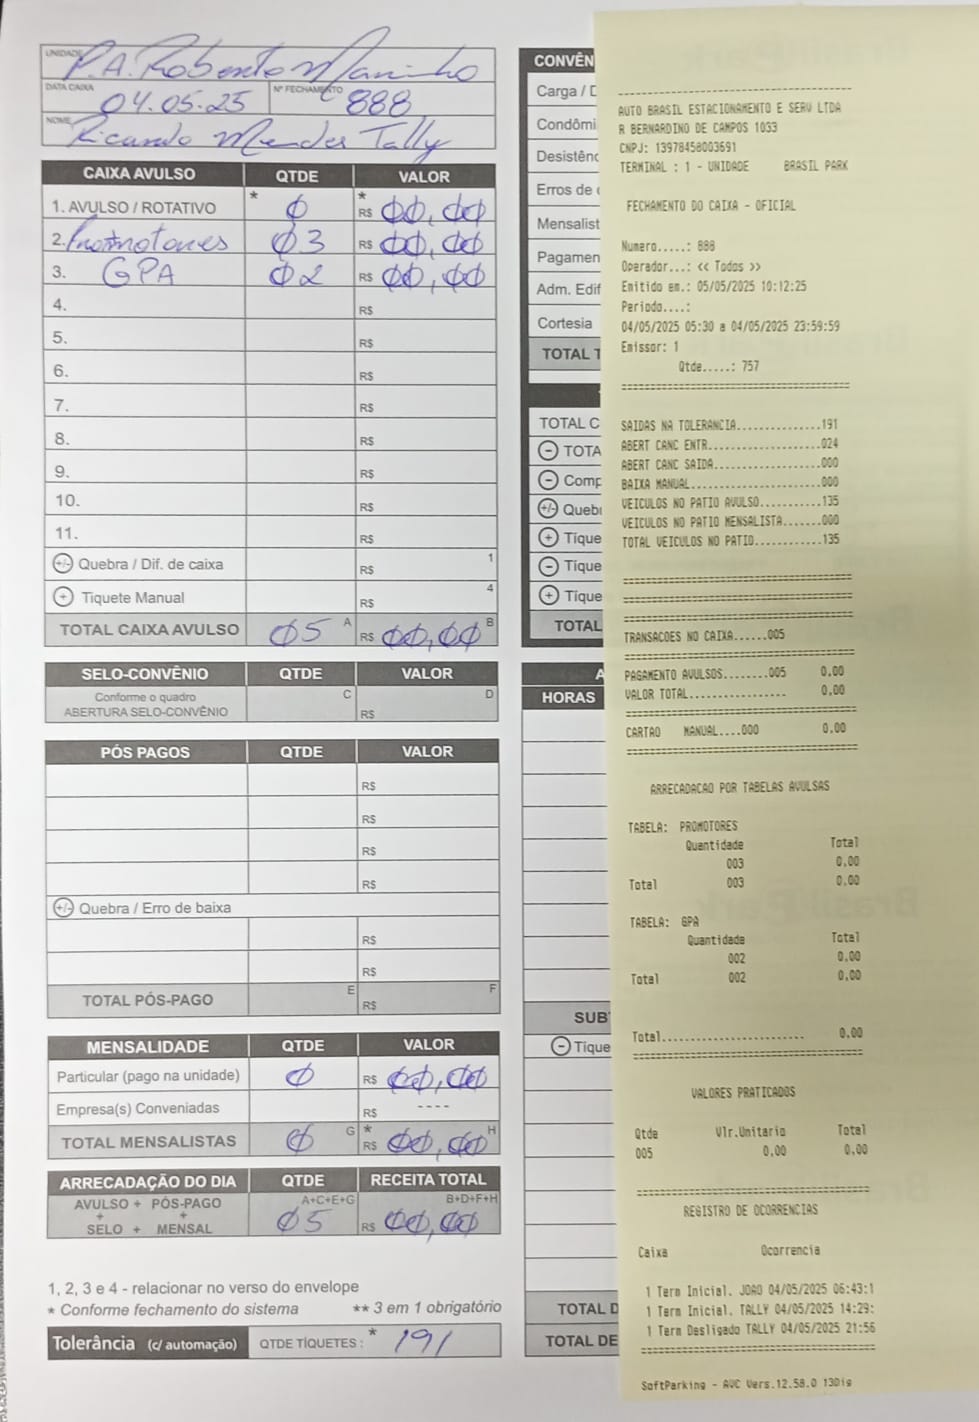 UNIDADE P.A. Roberto Marinho
DATA CAIXA 04.05.25 Nº FECHAMENTO 888
NOME Ricardo Mendes Tally
CAIXA AVULSO QTDE VALOR
1. AVULSO / ROTATIVO * Ø * R$ ØØ,ØØ
2. Promotores Ø3 R$ ØØ,ØØ
3. GPA Ø2 R$ ØØ,ØØ
4. R$
5. R$
6. R$
7. R$
8. R$
9. R$
10. R$
11. R$
+/- Quebra / Dif. de caixa R$ 1
+ Tiquete Manual R$ 4
TOTAL CAIXA AVULSO Ø5 A R$ ØØ,ØØ B
SELO-CONVÊNIO QTDE VALOR
Conforme o quadro C D
ABERTURA SELO-CONVÊNIO R$
PÓS PAGOS QTDE VALOR
R$
R$
R$
R$
+/- Quebra / Erro de baixa
R$
R$
TOTAL PÓS-PAGO E R$ F
MENSALIDADE QTDE VALOR
Particular (pago na unidade) Ø R$ ØØ,ØØ
Empresa(s) Conveniadas R$ ----
TOTAL MENSALISTAS Ø G * R$ ØØ,ØØ H
ARRECADAÇÃO DO DIA QTDE RECEITA TOTAL
AVULSO + PÓS-PAGO A+C+E+G B+D+F+H
+ +
SELO + MENSAL Ø5 R$ ØØ,ØØ
1, 2, 3 e 4 - relacionar no verso do envelope
* Conforme fechamento do sistema ** 3 em 1 obrigatório
Tolerância (c/ automação) QTDE TÍQUETES : * 191
CONVÊN
Carga / D
Condômi
Desistênc
Erros de
Mensalist
Pagamen
Adm. Edif
Cortesia
TOTAL T
TOTAL C
- TOTA
- Comp
+/- Queb
+ Tique
- Tique
+ Tique
TOTAL
A
HORAS
SUB
- Tique
TOTAL D
TOTAL DE
AUTO BRASIL ESTACIONAMENTO E SERV LTDA
R BERNARDINO DE CAMPOS 1033
CNPJ: 13978458003691
TERMINAL : 1 - UNIDADE BRASIL PARK
FECHAMENTO DO CAIXA - OFICIAL
Numero.....: 888
Operador...: << Todos >>
Emitido em.: 05/05/2025 10:12:25
Periodo....:
04/05/2025 05:30 a 04/05/2025 23:59:59
Emissor: 1
Qtde.....: 757
SAIDAS NA TOLERANCIA...............191
ABERT CANC ENTR....................024
ABERT CANC SAIDA...................000
BAIXA MANUAL.......................000
VEICULOS NO PATIO AVULSO...........135
VEICULOS NO PATIO MENSALISTA.......000
TOTAL VEICULOS NO PATIO............135
TRANSACOES NO CAIXA......005
PAGAMENTO AVULSOS........005 0,00
VALOR TOTAL................. 0,00
CARTAO MANUAL....000 0,00
ARRECADACAO POR TABELAS AVULSAS
TABELA: PROMOTORES
Quantidade Total
003 0,00
Total 003 0,00
TABELA: GPA
Quantidade Total
002 0,00
Total 002 0,00
Total......................... 0,00
VALORES PRATICADOS
Qtde Vlr.Unitario Total
005 0,00 0,00
REGISTRO DE OCORRENCIAS
Caixa Ocorrencia
1 Term Inicial. JOAO 04/05/2025 06:43:1
1 Term Inicial. TALLY 04/05/2025 14:29:
1 Term Desligado TALLY 04/05/2025 21:56
SoftParking - AVC Vers.12.58.0 13Dig